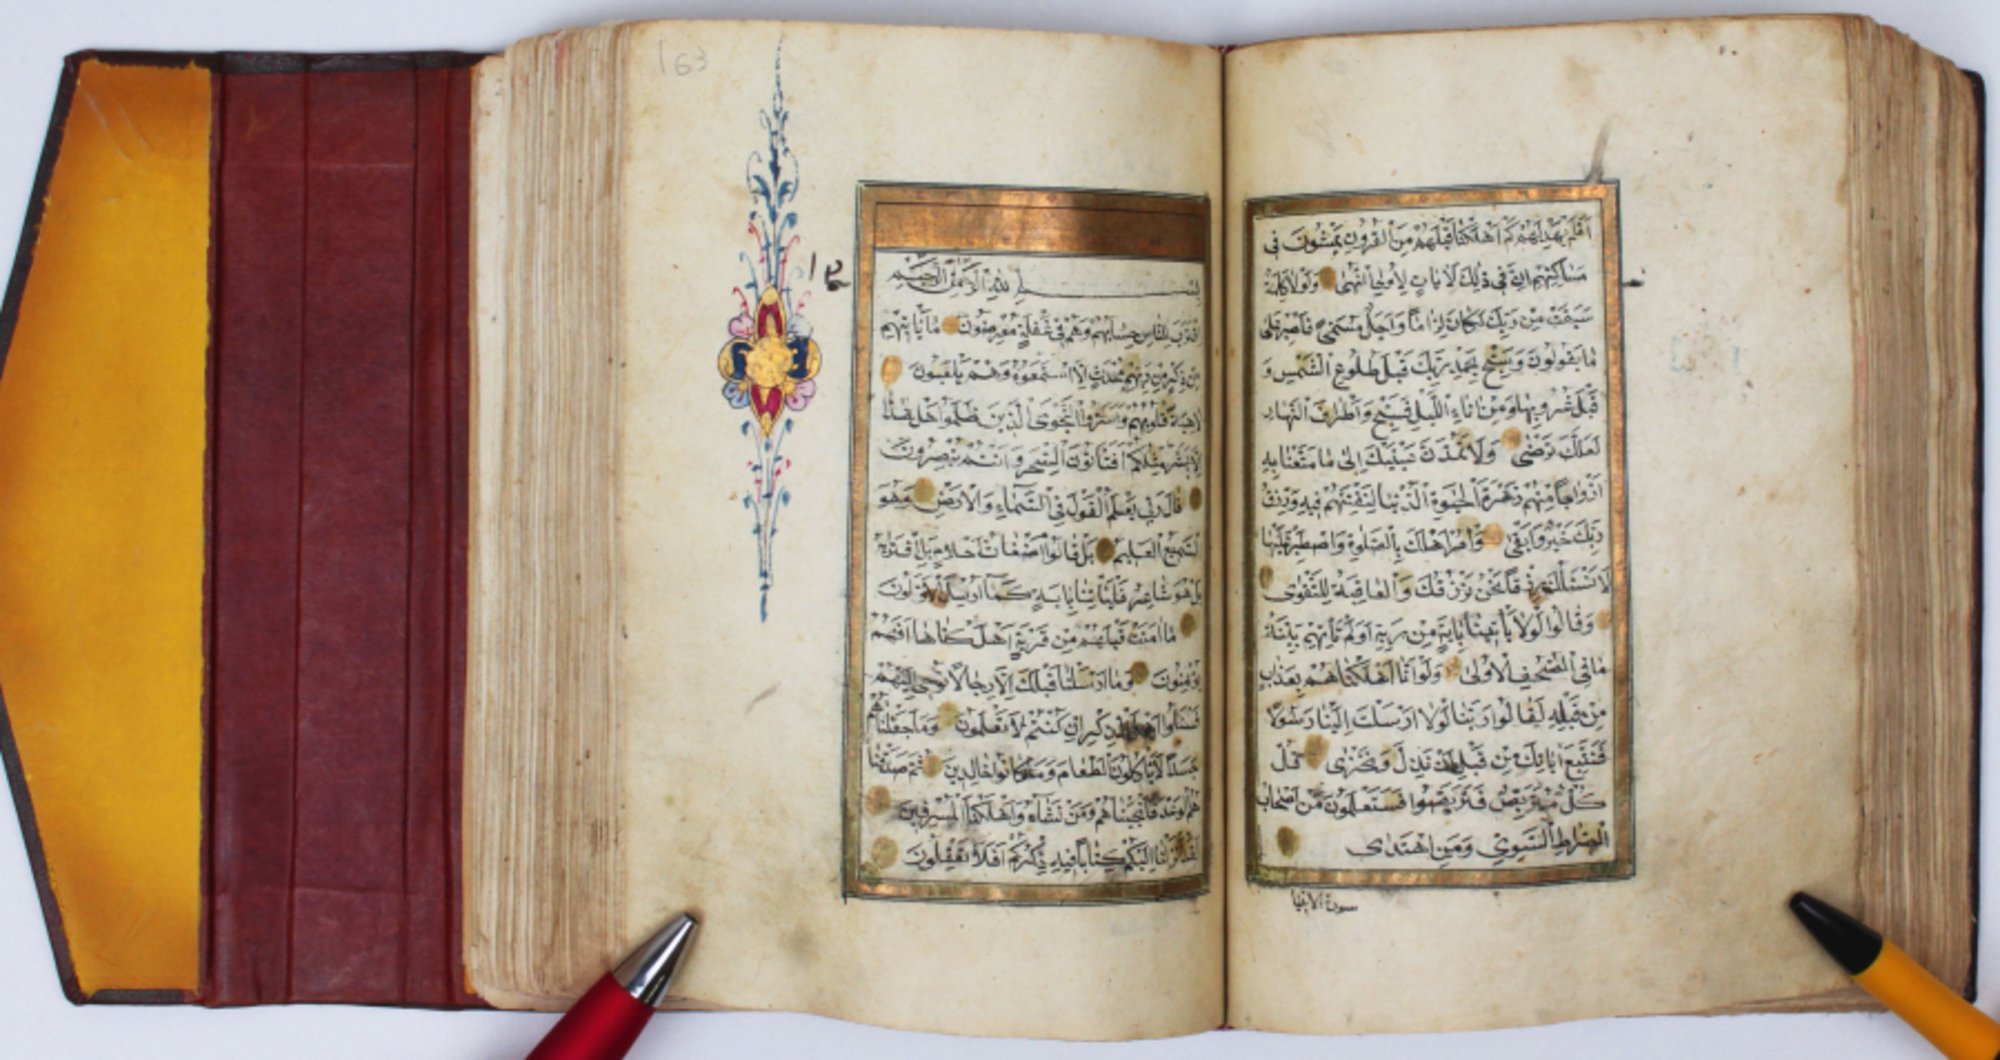 اَفَلَمْ يَهْدِ لَهُمْ كَمْ اَهْلَكْنَا قَبْلَهُمْ مِنَ الْقُرُونِ يَمْشُونَ فِى
مَسَاكِنِهِمْ اِنَّ فِى ذٰلِكَ لَاٰيَاتٍ لِاُولِى النُّهٰى وَلَوْلَا كَلِمَةٌ
سَبَقَتْ مِنْ رَبِّكَ لَكَانَ لِزَامًا وَاَجَلٌ مُسَمًّى فَاصْبِرْ عَلٰى
مَا يَقُولُونَ وَسَبِّحْ بِحَمْدِ رَبِّكَ قَبْلَ طُلُوعِ الشَّمْسِ وَ
قَبْلَ غُرُوبِهَا وَمِنْ اٰنَاءِ الَّيْلِ فَسَبِّحْ وَاَطْرَافَ النَّهَارِ
لَعَلَّكَ تَرْضٰى وَلَا تَمُدَّنَّ عَيْنَيْكَ اِلٰى مَا مَتَّعْنَا بِهِ
اَزْوَاجًا مِنْهُمْ زَهْرَةَ الْحَيٰوةِ الدُّنْيَا لِنَفْتِنَهُمْ فِيهِ وَرِزْقُ
رَبِّكَ خَيْرٌ وَاَبْقٰى وَأْمُرْ اَهْلَكَ بِالصَّلٰوةِ وَاصْطَبِرْ عَلَيْهَا
لَا نَسْئَلُكَ رِزْقًا نَحْنُ نَرْزُقُكَ وَالْعَاقِبَةُ لِلتَّقْوٰى
وَقَالُوا لَوْلَا يَأْتِينَا بِاٰيَةٍ مِنْ رَبِّهِ اَوَلَمْ تَأْتِهِمْ بَيِّنَةُ
مَا فِى الصُّحُفِ الْاُولٰى وَلَوْ اَنَّا اَهْلَكْنَاهُمْ بِعَذَابٍ
مِنْ قَبْلِهِ لَقَالُوا رَبَّنَا لَوْلَا اَرْسَلْتَ اِلَيْنَا رَسُولًا
فَنَتَّبِعَ اٰيَاتِكَ مِنْ قَبْلِ اَنْ نَذِلَّ وَنَخْزٰى قُلْ
كُلٌّ مُتَرَبِّصٌ فَتَرَبَّصُوا فَسَتَعْلَمُونَ مَنْ اَصْحَابُ
الصِّرَاطِ السَّوِىِّ وَمَنِ اهْتَدٰى
سورة الانبيا
163
بِسْمِ اللّٰهِ الرَّحْمٰنِ الرَّحِيمِ
اِقْتَرَبَ لِلنَّاسِ حِسَابُهُمْ وَهُمْ فِى غَفْلَةٍ مُعْرِضُونَ مَا يَأْتِيهِمْ
مِنْ ذِكْرٍ مِنْ رَبِّهِمْ مُحْدَثٍ اِلَّا اسْتَمَعُوهُ وَهُمْ يَلْعَبُونَ
لَاهِيَةً قُلُوبُهُمْ وَاَسَرُّوا النَّجْوَى الَّذِينَ ظَلَمُوا هَلْ هٰذَا
اِلَّا بَشَرٌ مِثْلُكُمْ اَفَتَأْتُونَ السِّحْرَ وَاَنْتُمْ تُبْصِرُونَ
قَالَ رَبِّى يَعْلَمُ الْقَوْلَ فِى السَّمَاءِ وَالْاَرْضِ وَهُوَ
السَّمِيعُ الْعَلِيمُ بَلْ قَالُوا اَضْغَاثُ اَحْلَامٍ بَلِ افْتَرٰيهُ
بَلْ هُوَ شَاعِرٌ فَلْيَأْتِنَا بِاٰيَةٍ كَمَا اُرْسِلَ الْاَوَّلُونَ
مَا اٰمَنَتْ قَبْلَهُمْ مِنْ قَرْيَةٍ اَهْلَكْنَاهَا اَفَهُمْ
يُؤْمِنُونَ وَمَا اَرْسَلْنَا قَبْلَكَ اِلَّا رِجَالًا نُوحِى اِلَيْهِمْ
فَسْئَلُوا اَهْلَ الذِّكْرِ اِنْ كُنْتُمْ لَا تَعْلَمُونَ وَمَا جَعَلْنَاهُمْ
جَسَدًا لَا يَأْكُلُونَ الطَّعَامَ وَمَا كَانُوا خَالِدِينَ ثُمَّ صَدَقْنَا
هُمُ الْوَعْدَ فَاَنْجَيْنَاهُمْ وَمَنْ نَشَاءُ وَاَهْلَكْنَا الْمُسْرِفِينَ
لَقَدْ اَنْزَلْنَا اِلَيْكُمْ كِتَابًا فِيهِ ذِكْرُكُمْ اَفَلَا تَعْقِلُونَ